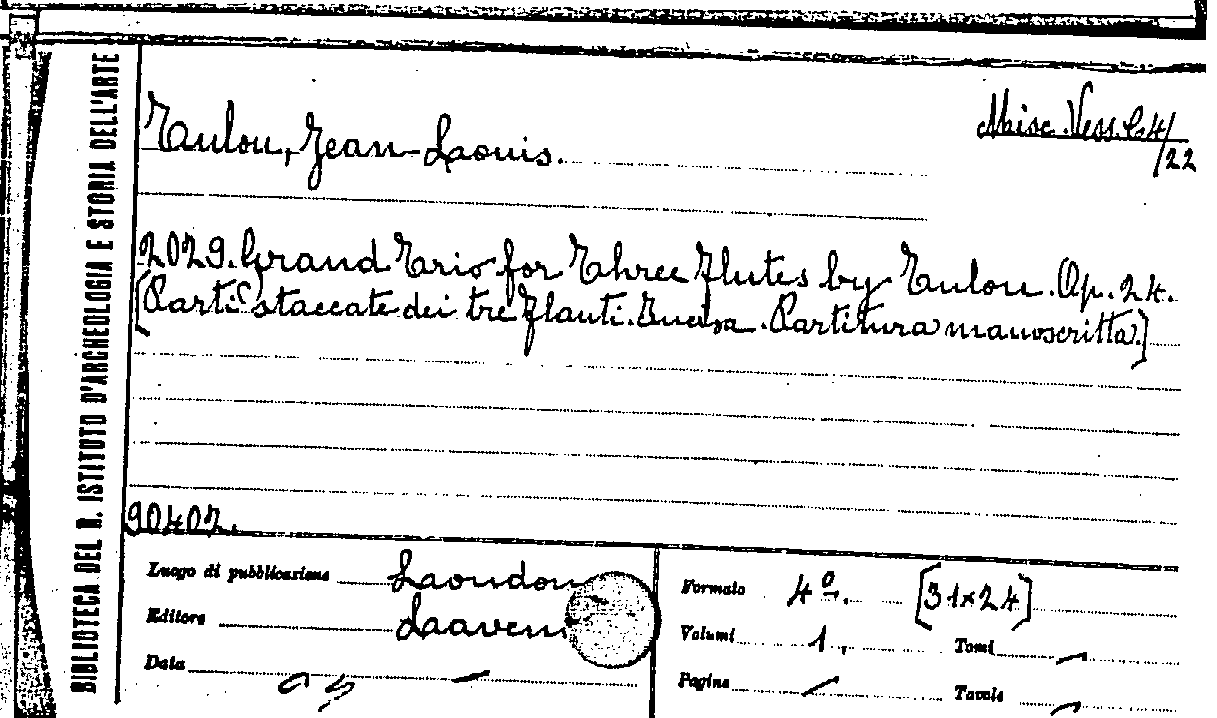 BIBLIOTECA DEL R. ISTITUTO D'ARCHEOLOGIA E STORIA DELL'ARTE
Misc. Vess. C.4/22
Tulou, Jean-Louis.
2029. Grand Trio for Three Flutes by Tulou. Op. 24.
[Parti staccate dei tre flauti. Partitura manoscritta.]
90407.
Luogo di pubblicazione London
Editore
Data
Formato 4º. [31×24]
Volumi 1.
Tomi
Pagine
Tavole